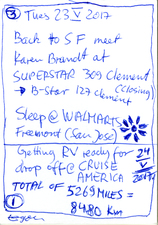 ③ Tues 23 V 2017
Back to SF meet
Karen Brandt at
SUPERSTAR 309 Clement
→ B-Star 127 clement
(closing)
Sleep@WALMARTS
Fremont (San Jose)
Getting RV ready for 24
drop off @ CRUISE V
AMERICA 2017
TOTAL OF 5269 MILES =
8480 Km
①